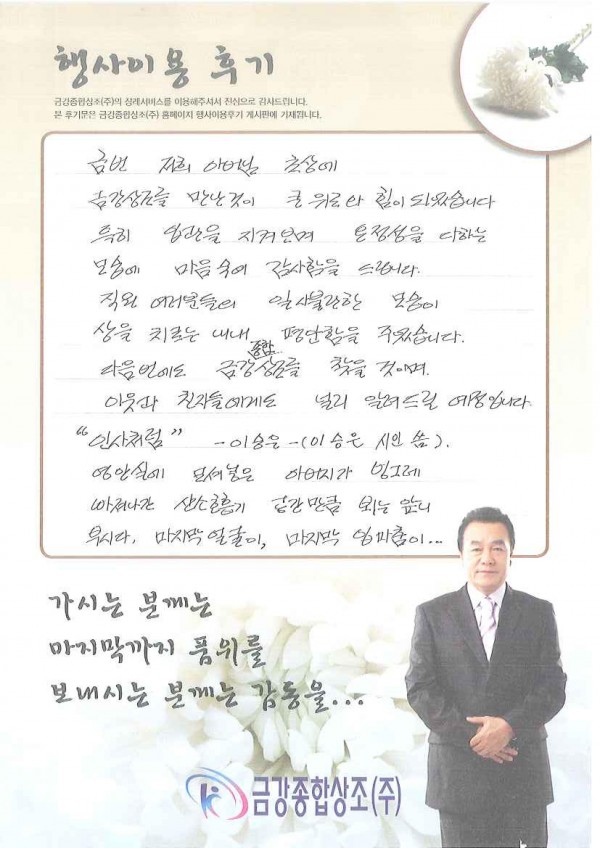 행사이용 후기
금강종합상조(주)의 장례서비스를 이용해주셔서 진심으로 감사드립니다.
본 후기문은 금강종합상조(주) 홈페이지 행사이용후기 게시판에 기재됩니다.
금번 저희 아버님 초상에
금강상조를 만난것이 큰 위로와 힘이 되었습니다
특히 입관을 지켜보며 온정성을 다하는
모습에 마음속에 감사함을 드립니다.
직원 여러분들의 일사불란한 모습이
상을 치르는 내내 평안함을 주었습니다.
다음번에도 금강종합상조를 찾을 것이며.
이웃과 친지들에게도 널리 알려드릴 예정입니다.
"인사처럼" - 이승은 - (이승은 시인 씀).
영안실에 모셔널은 아버지가 빙그레
빠져나간 산소호흡기 만큼 앞니
부시다. 마지막 얼굴이, 마지막 입맞춤이...
가시는 분께는
마지막까지 품위를
보내시는 분께는 감동을...
금강종합상조(주)